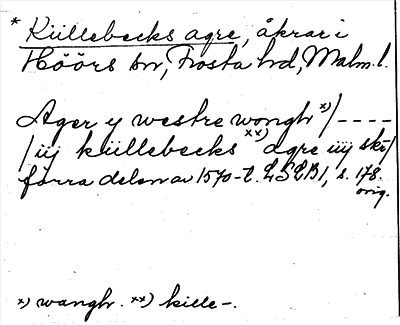 * Küllebecks agre, åkrar i
Höörs sn, Frosta hd, Malm. l.
Ager y westre wongh x) /----
/ iij küllebecks xx) agre iiij skr/
förra delen av 1570-t. LSLB1, s. 178.
orig.
x) wangh. xx) kille-.